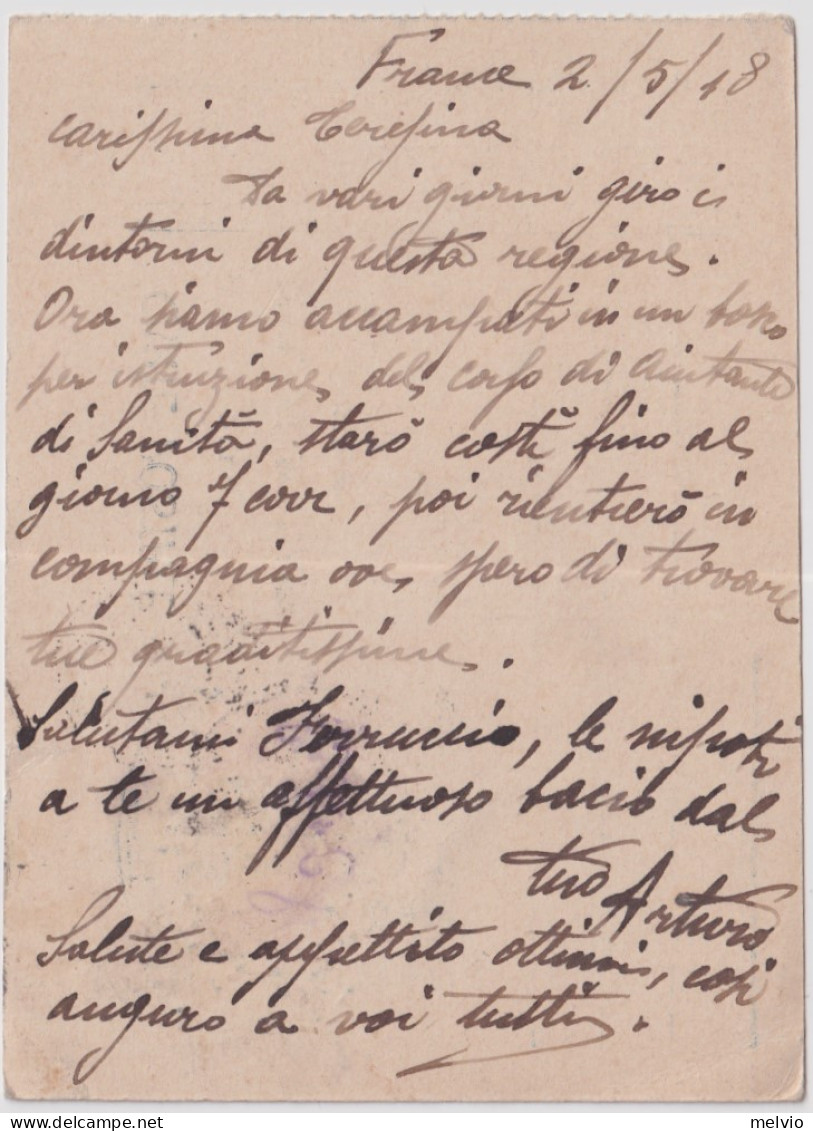 France 2/5/18
Carissima Teresina
Da vari giorni giro i
dintorni di questa regione.
Ora siamo accampati in un bosco
per istruzione del corso di Aiutante
di Sanità, starò costì fino al
giorno 7 corr, poi rientrerò in
compagnia ove spero di trovare
tue graditissime.
Salutami Ferruccio, le nipoti
a te un affettuoso bacio dal
tuo Arturo
Salute e appettito ottimi, così
auguro a voi tutti.
melvio